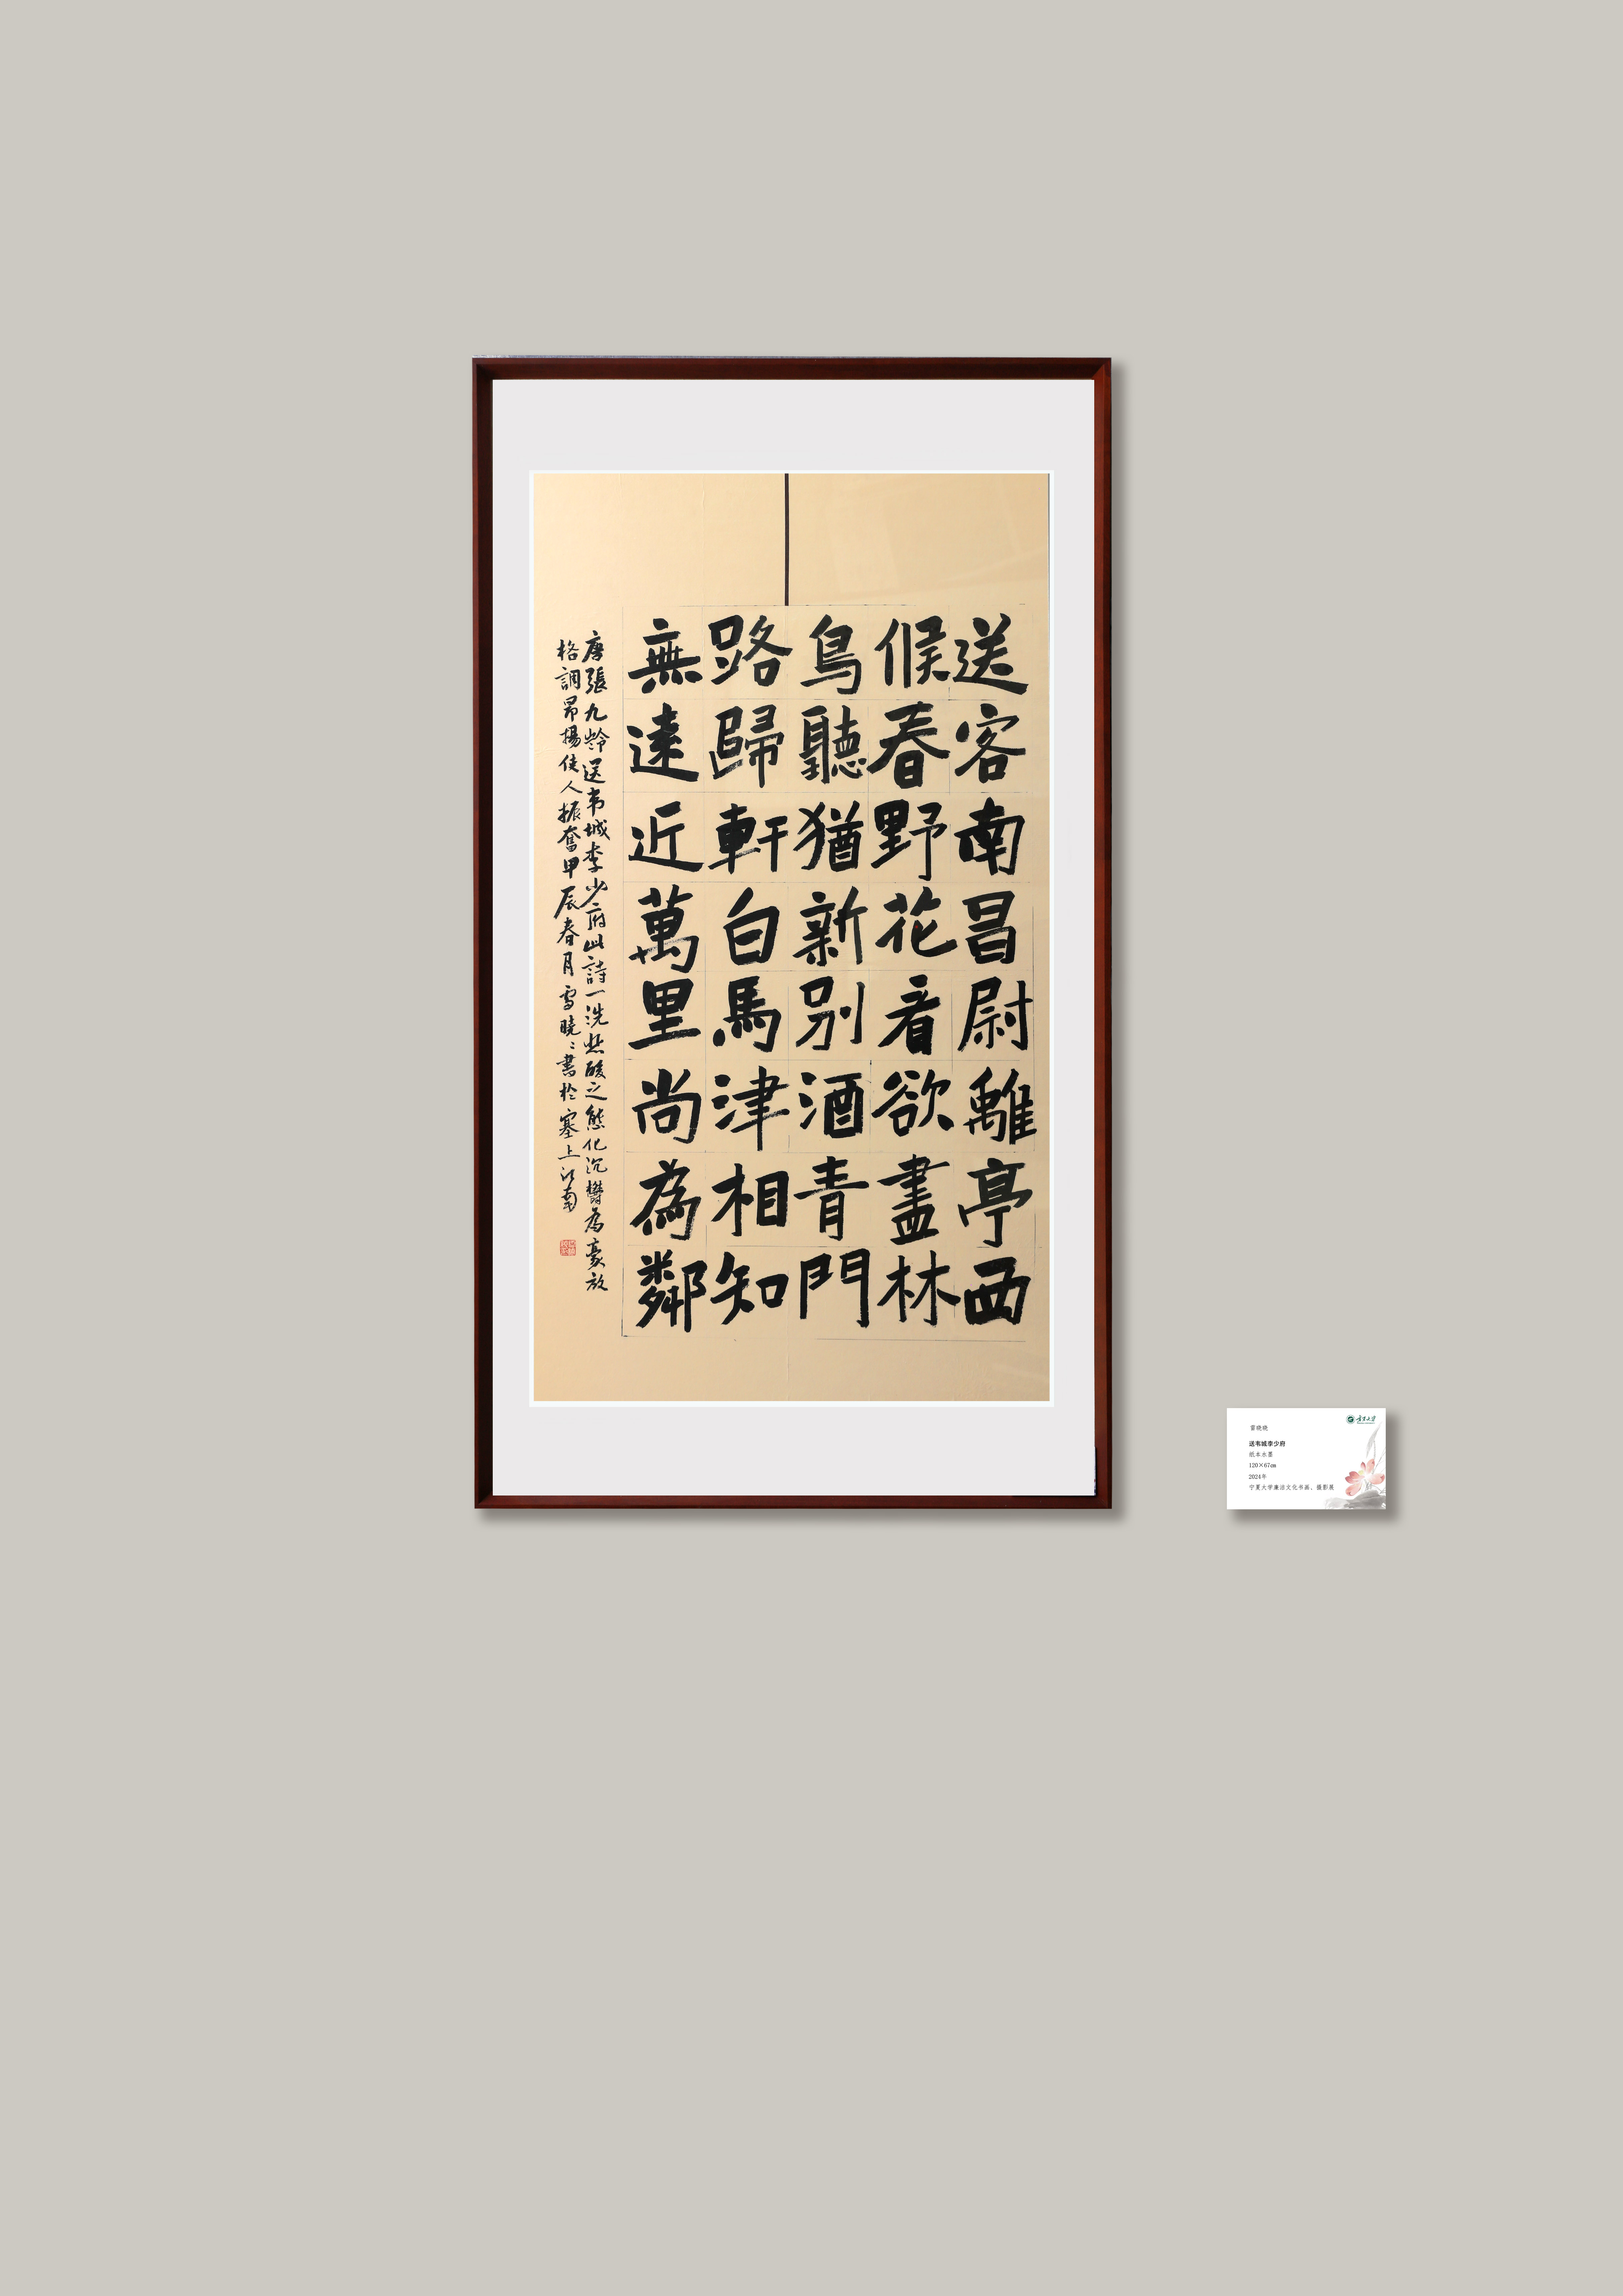 送客南昌尉離亭西
候春野花看欲盡林
鳥聽猶新別酒青門
路歸軒白馬津相知
無遠近萬里尚為鄰
唐張九齡送韋城李少府此詩一洗悲酸之態化沉鬱為豪放
格調昂揚使人振奮甲辰春月曉〻書於塞上江南
宁夏大学
晓晓
送韦城李少府
纸本水墨
120×67cm
2024年
宁夏大学廉洁文化书画、摄影展